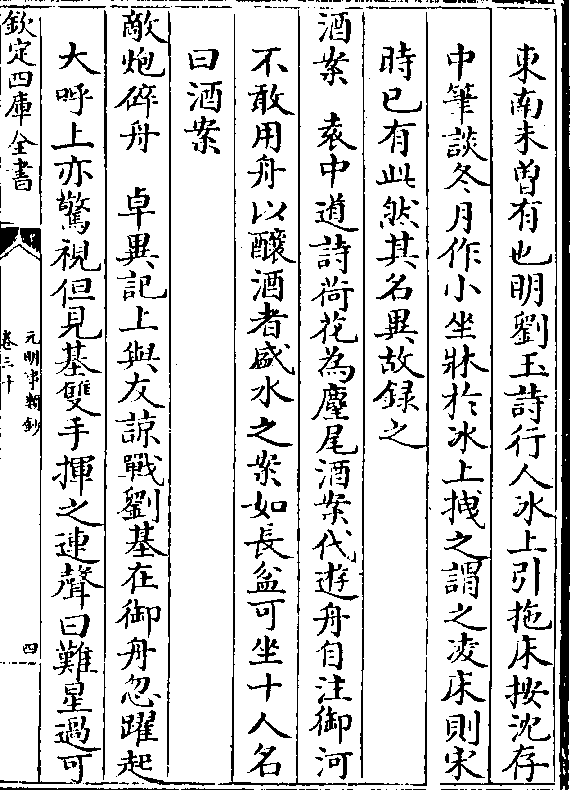 東南未曽有也明劉玉詩行人冰上引拖床按沈存
中筆談冬月作小坐牀於冰上拽之謂之凌床則宋
時已有此然其名異故録之
酒桨　袁中道詩荷花為麈尾酒桨代遊舟自注御河
不敢用舟以釀酒者盛水之桨如長盆可坐十人名
曰酒桨
敵炮碎舟　卓異記上與友諒戰劉基在御舟忽躍起
大呼上亦驚視但見基雙手揮之連聲曰難星過可
欽定四庫全書
元明事類鈔
卷三十
四